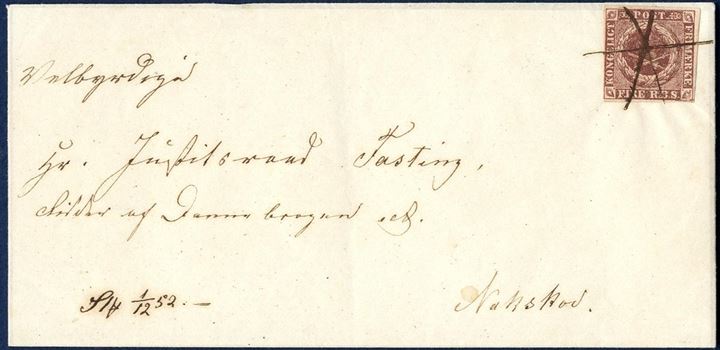 KONGELIGT POST FRIMÆRKE FIRE R.B.S.
Velbyrdige
Hr. Justitsraad Fasting,
Ridder af Dannebrogen etc.
1/12 52. —
Nakskov.